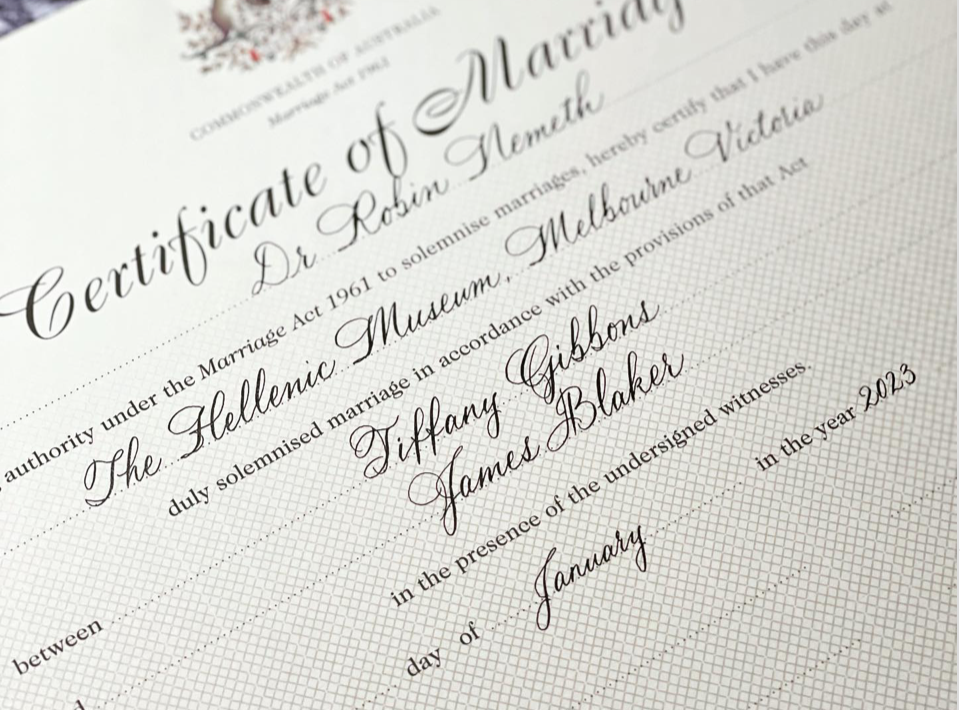 COMMONWEALTH OF AUSTRALIA
Marriage Act 1961
Certificate of Marriag
Dr Robin Nemeth
authority under the Marriage Act 1961 to solemnise marriages, hereby certify that I have this day at
The Hellenic Museum, Melbourne Victoria
duly solemnised marriage in accordance with the provisions of that Act
between Tiffany Gibbons
James Blaker
in the presence of the undersigned witnesses.
day of January in the year 2023